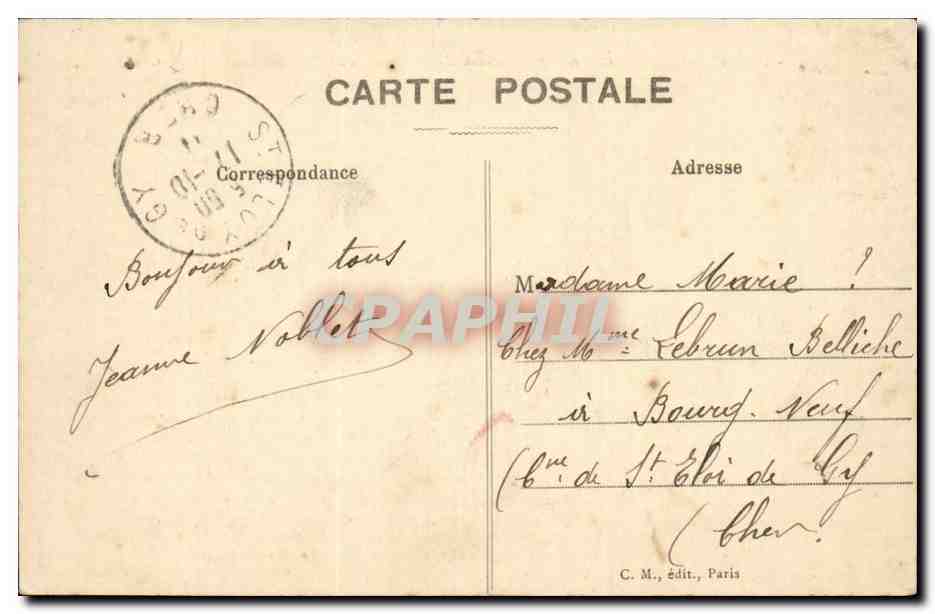 CARTE POSTALE
Correspondance
Adresse
ST ELOY DE GY
CHER
Bonjour à tous
Jeanne Noblet
Madame Marie !
Chez Mme Lebrun Belliche
à Bourg-Neuf
(Cne de St Eloi de Gy
(Cher.
C. M., édit., Paris
CPAPHIL